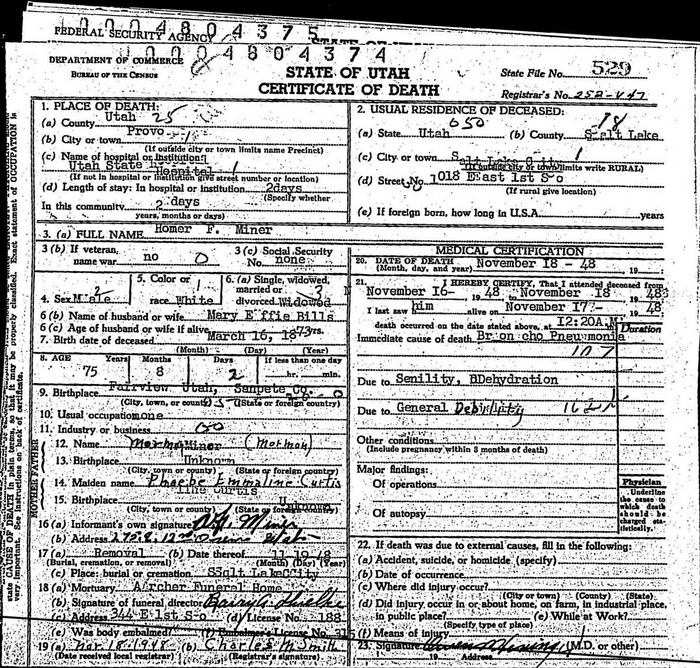 0004804375
FEDERAL SECURITY AGENCY
0004804374
DEPARTMENT OF COMMERCE
BUREAU OF THE CENSUS
STATE OF UTAH
CERTIFICATE OF DEATH
State File No. 529
Registrar's No. 252-V47
1. PLACE OF DEATH:
(a) County Utah 25
(b) City or town Provo
(If outside city or town limits name Precinct)
(c) Name of hospital or institution:
Utah State Hospital 1
(If not in hospital or institution give street number or location)
(d) Length of stay: In hospital or institution 2days
(Specify whether
In this community 2 days
years, months or days)
2. USUAL RESIDENCE OF DECEASED:
050 18
(a) State Utah (b) County Salt Lake
(c) City or town Salt Lake City 1
(If outside city or town limits write RURAL)
(d) Street No 1018 East 1st So
(If rural give location)
(e) If foreign born, how long in U.S.A. years
3. (a) FULL NAME Homer F. Miner
3 (b) If veteran, name war no 0
3 (c) Social Security No. none
4. Sex Male 2
5. Color or race White 1
6. (a) Single, widowed, married or divorced Widowed 3
6 (b) Name of husband or wife Mary Effie Bills
6 (c) Age of husband or wife if alive yrs.
7. Birth date of deceased March 16, 1873
(Month) (Day) (Year)
8. AGE Years Months Days If less than one day
75 8 2 hr. min.
9. Birthplace Fairview Utah, Sanpete Co.
(City, town, or county) (State or foreign country)
10. Usual occupation none
11. Industry or business
12. Name Miner (Mormon)
13. Birthplace Unknown
(City, town or county) (State or foreign country)
14. Maiden name Phoebe Emmaline Curtis
15. Birthplace Unknown
(City, town or county) (State or foreign country)
16 (a) Informant's own signature
(b) Address
17 (a) Removal (b) Date thereof 11-19-48
(Burial, cremation, or removal) (Month) (Day) (Year)
(c) Place: burial or cremation SSalt LakeCity
18 (a) Mortuary Archer Funeral Home
(b) Signature of funeral director
(c) Address 244 E 1st So (d) License No. 188
(e) Was body embalmed? (f) Embalmer's License No. 315
19 (a) Nov 18-1948 (b) Charles M Smith
(Date received local registrar) (Registrar's signature)
MEDICAL CERTIFICATION
20. DATE OF DEATH November 18 - 48
(Month, day, and year) 19
21. I HEREBY CERTIFY, That I attended deceased from
November 16- 1948 to November 18 1948
I last saw him alive on November 17- 48
death occurred on the date stated above, at 12:20A.M
Duration
Immediate cause of death Broncho Pneumonia
107
Due to Senility, Dehydration
Due to General Debility 162
Other conditions
(Include pregnancy within 3 months of death)
Major findings:
Of operations
Of autopsy
Physician
Underline the cause to which death should be charged statistically.
22. If death was due to external causes, fill in the following:
(a) Accident, suicide, or homicide (specify)
(b) Date of occurrence
(c) Where did injury occur?
(City or town) (County) (State)
(d) Did injury occur in or about home, on farm, in industrial place, in public place? (e) While at Work?
(Specify type of place)
(f) Means of injury
23. Signature (M.D. or other)
Address 19